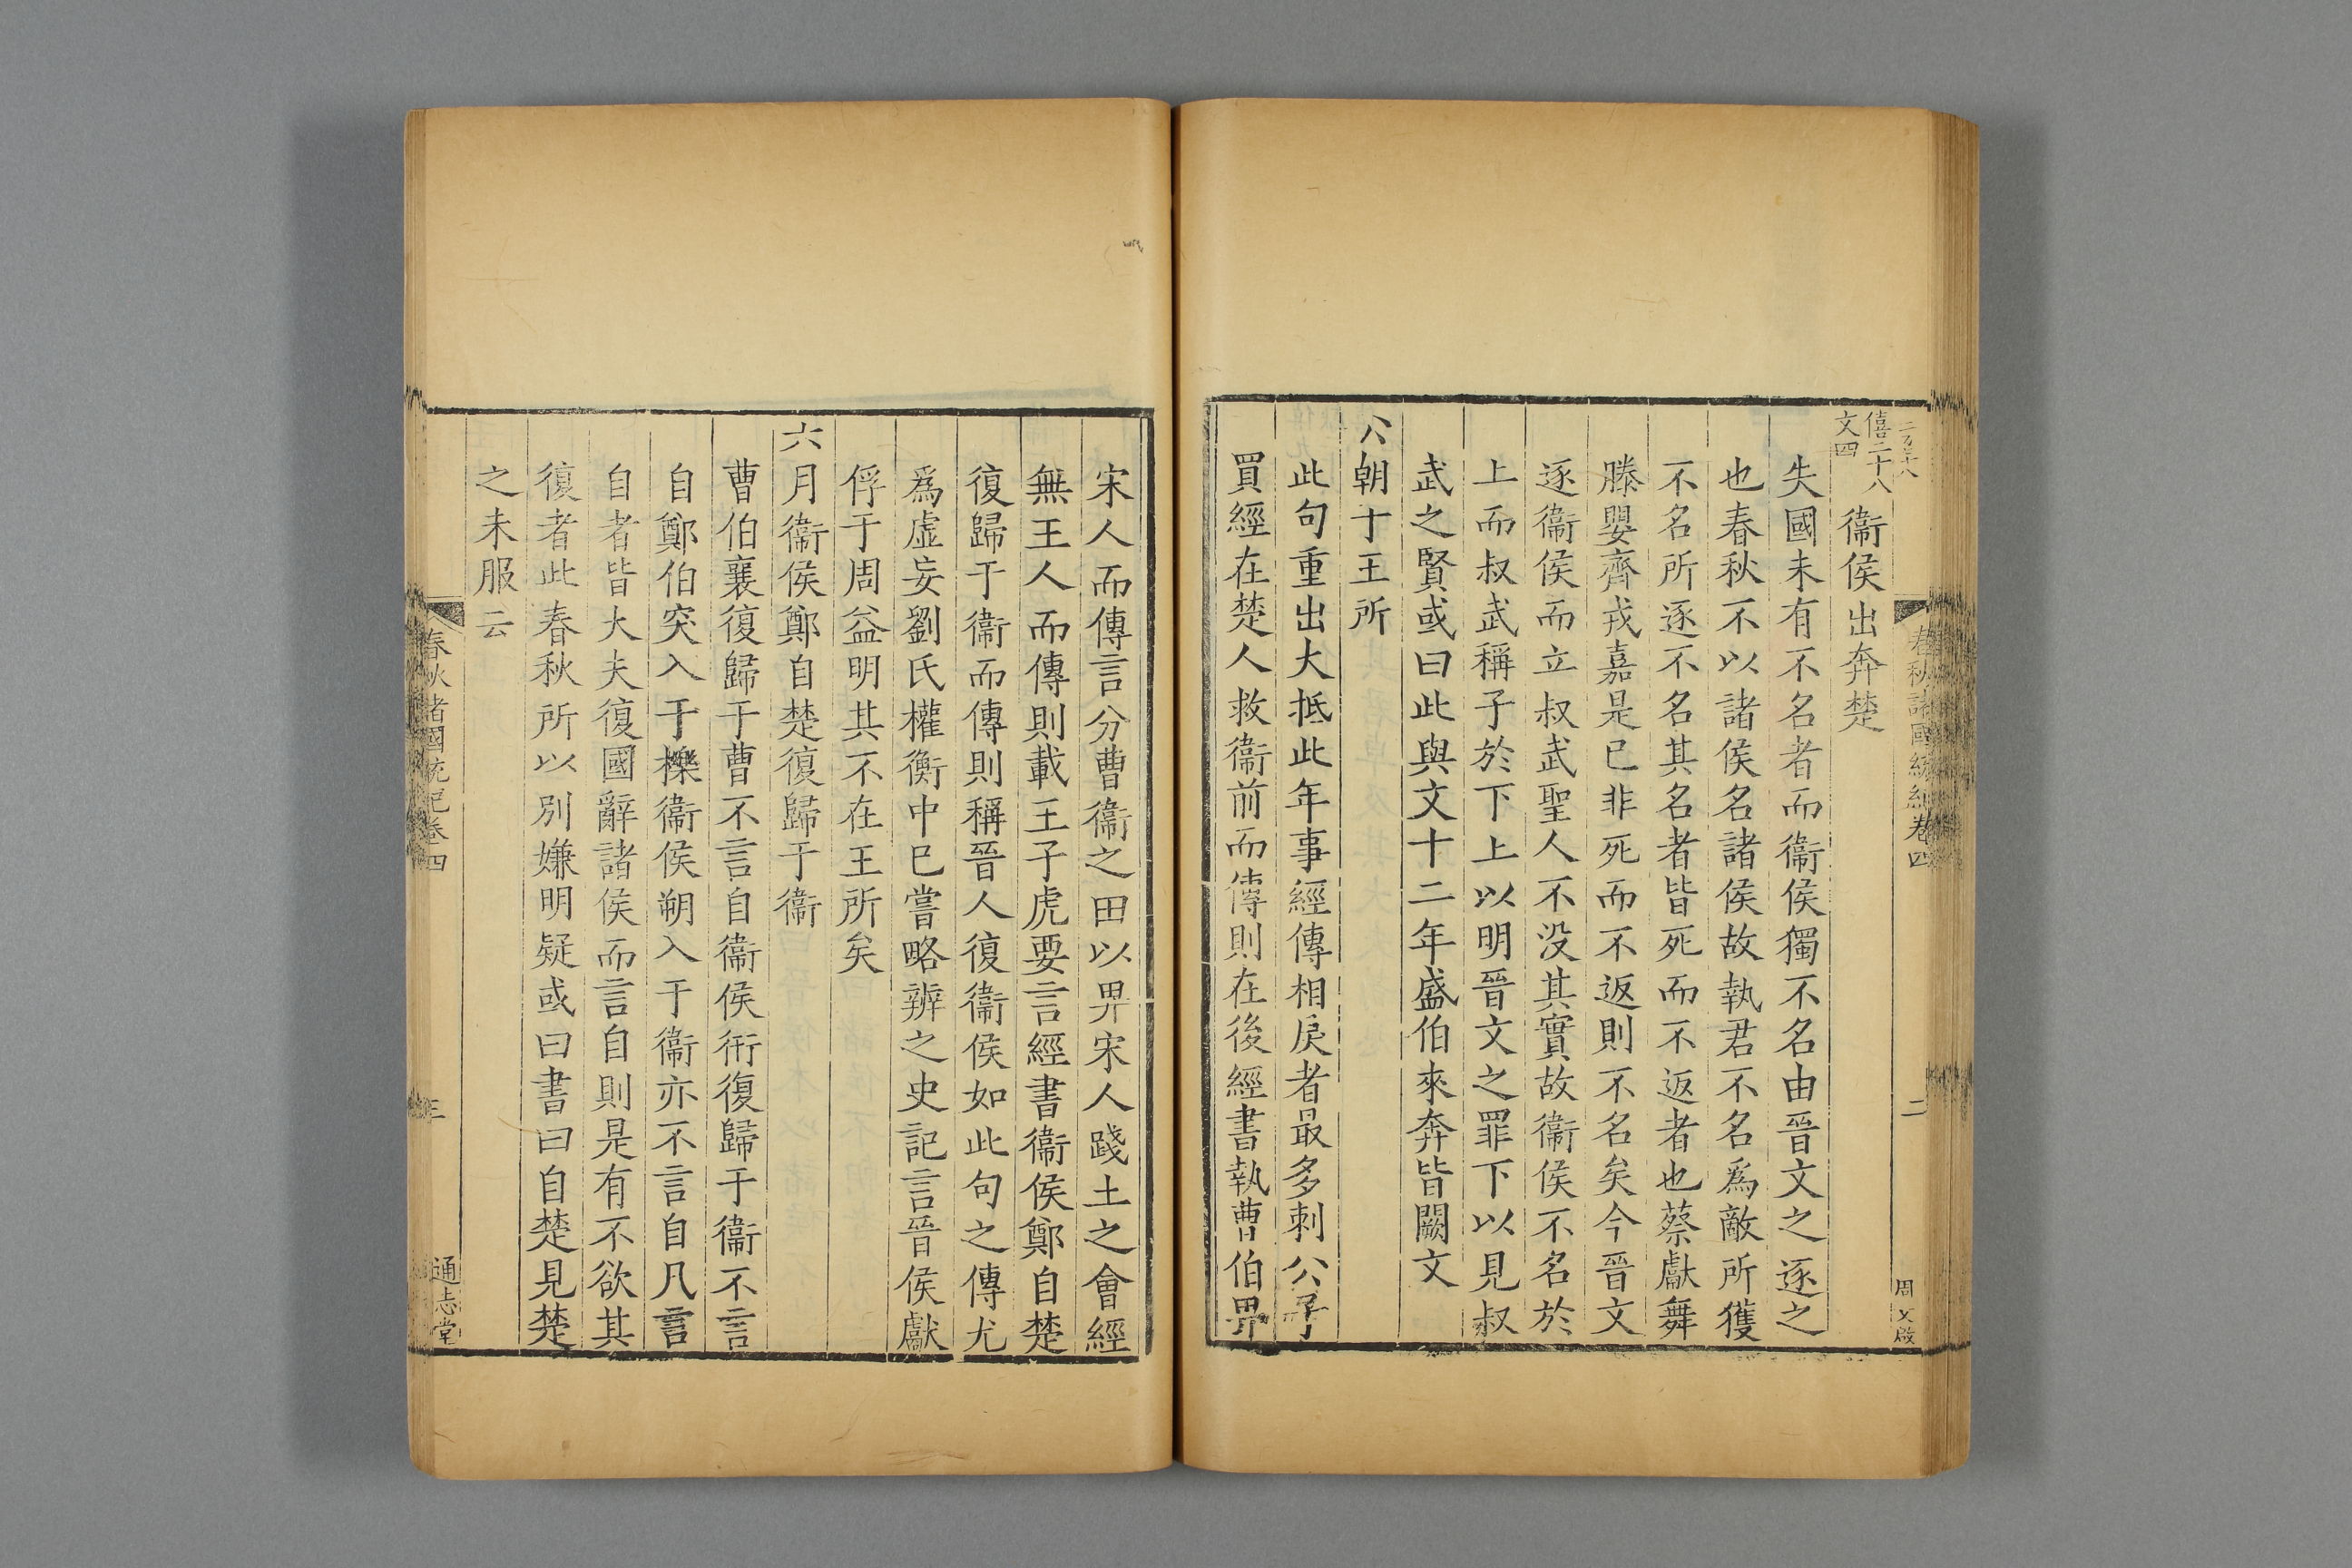 春秋諸國統紀卷四
二
周文啟
僖二十八
文四
衞侯出奔楚
失國未有不名者而衞侯獨不名由晉文之逐之
也春秋不以諸侯名諸侯故執君不名爲敵所獲
不名所逐不名其名者皆死而不返者也蔡獻舞
滕嬰齊戎嘉是已非死而不返則不名矣今晉文
逐衞侯而立叔武聖人不没其實故衞侯不名於
上而叔武稱子於下上以明晉文之罪下以見叔
武之賢或曰此與文十二年盛伯來奔皆闕文
公朝于王所
此句重出大抵此年事經傳相戾者最多刺公子
買經在楚人救衞前而傳則在後經書執曹伯畀
宋人而傳言分曹衞之田以畀宋人踐土之會經
無王人而傳則載王子虎要言經書衞侯鄭自楚
復歸于衞而傳則稱晉人復衞侯如此句之傳尤
爲虛妄劉氏權衡中已嘗略辨之史記言晉侯獻
俘于周益明其不在王所矣
六月衞侯鄭自楚復歸于衞
曹伯襄復歸于曹不言自衞侯衎復歸于衞不言
自鄭伯突入于櫟衞侯朔入于衞亦不言自凡言
自者皆大夫復國辭諸侯而言自則是有不欲其
復者此春秋所以別嫌明疑或曰書曰自楚見楚
之未服云
春秋諸國統紀卷四
三
通志堂